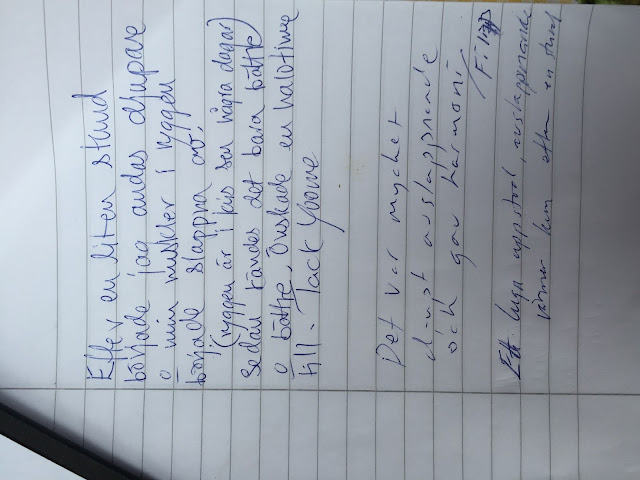 Efter en liten stund
började jag andas djupare
o min muskler i ryggen
började slappna av,
(ryggen är i kris sen några dagar)
Sedan kändes det bara bättre
o bättre, önskade en halvtimme
till. Tack Yvonne
Det var mycket
djupt avslappnande
och gav harmoni
Ett lugn uppstod, avslappnande